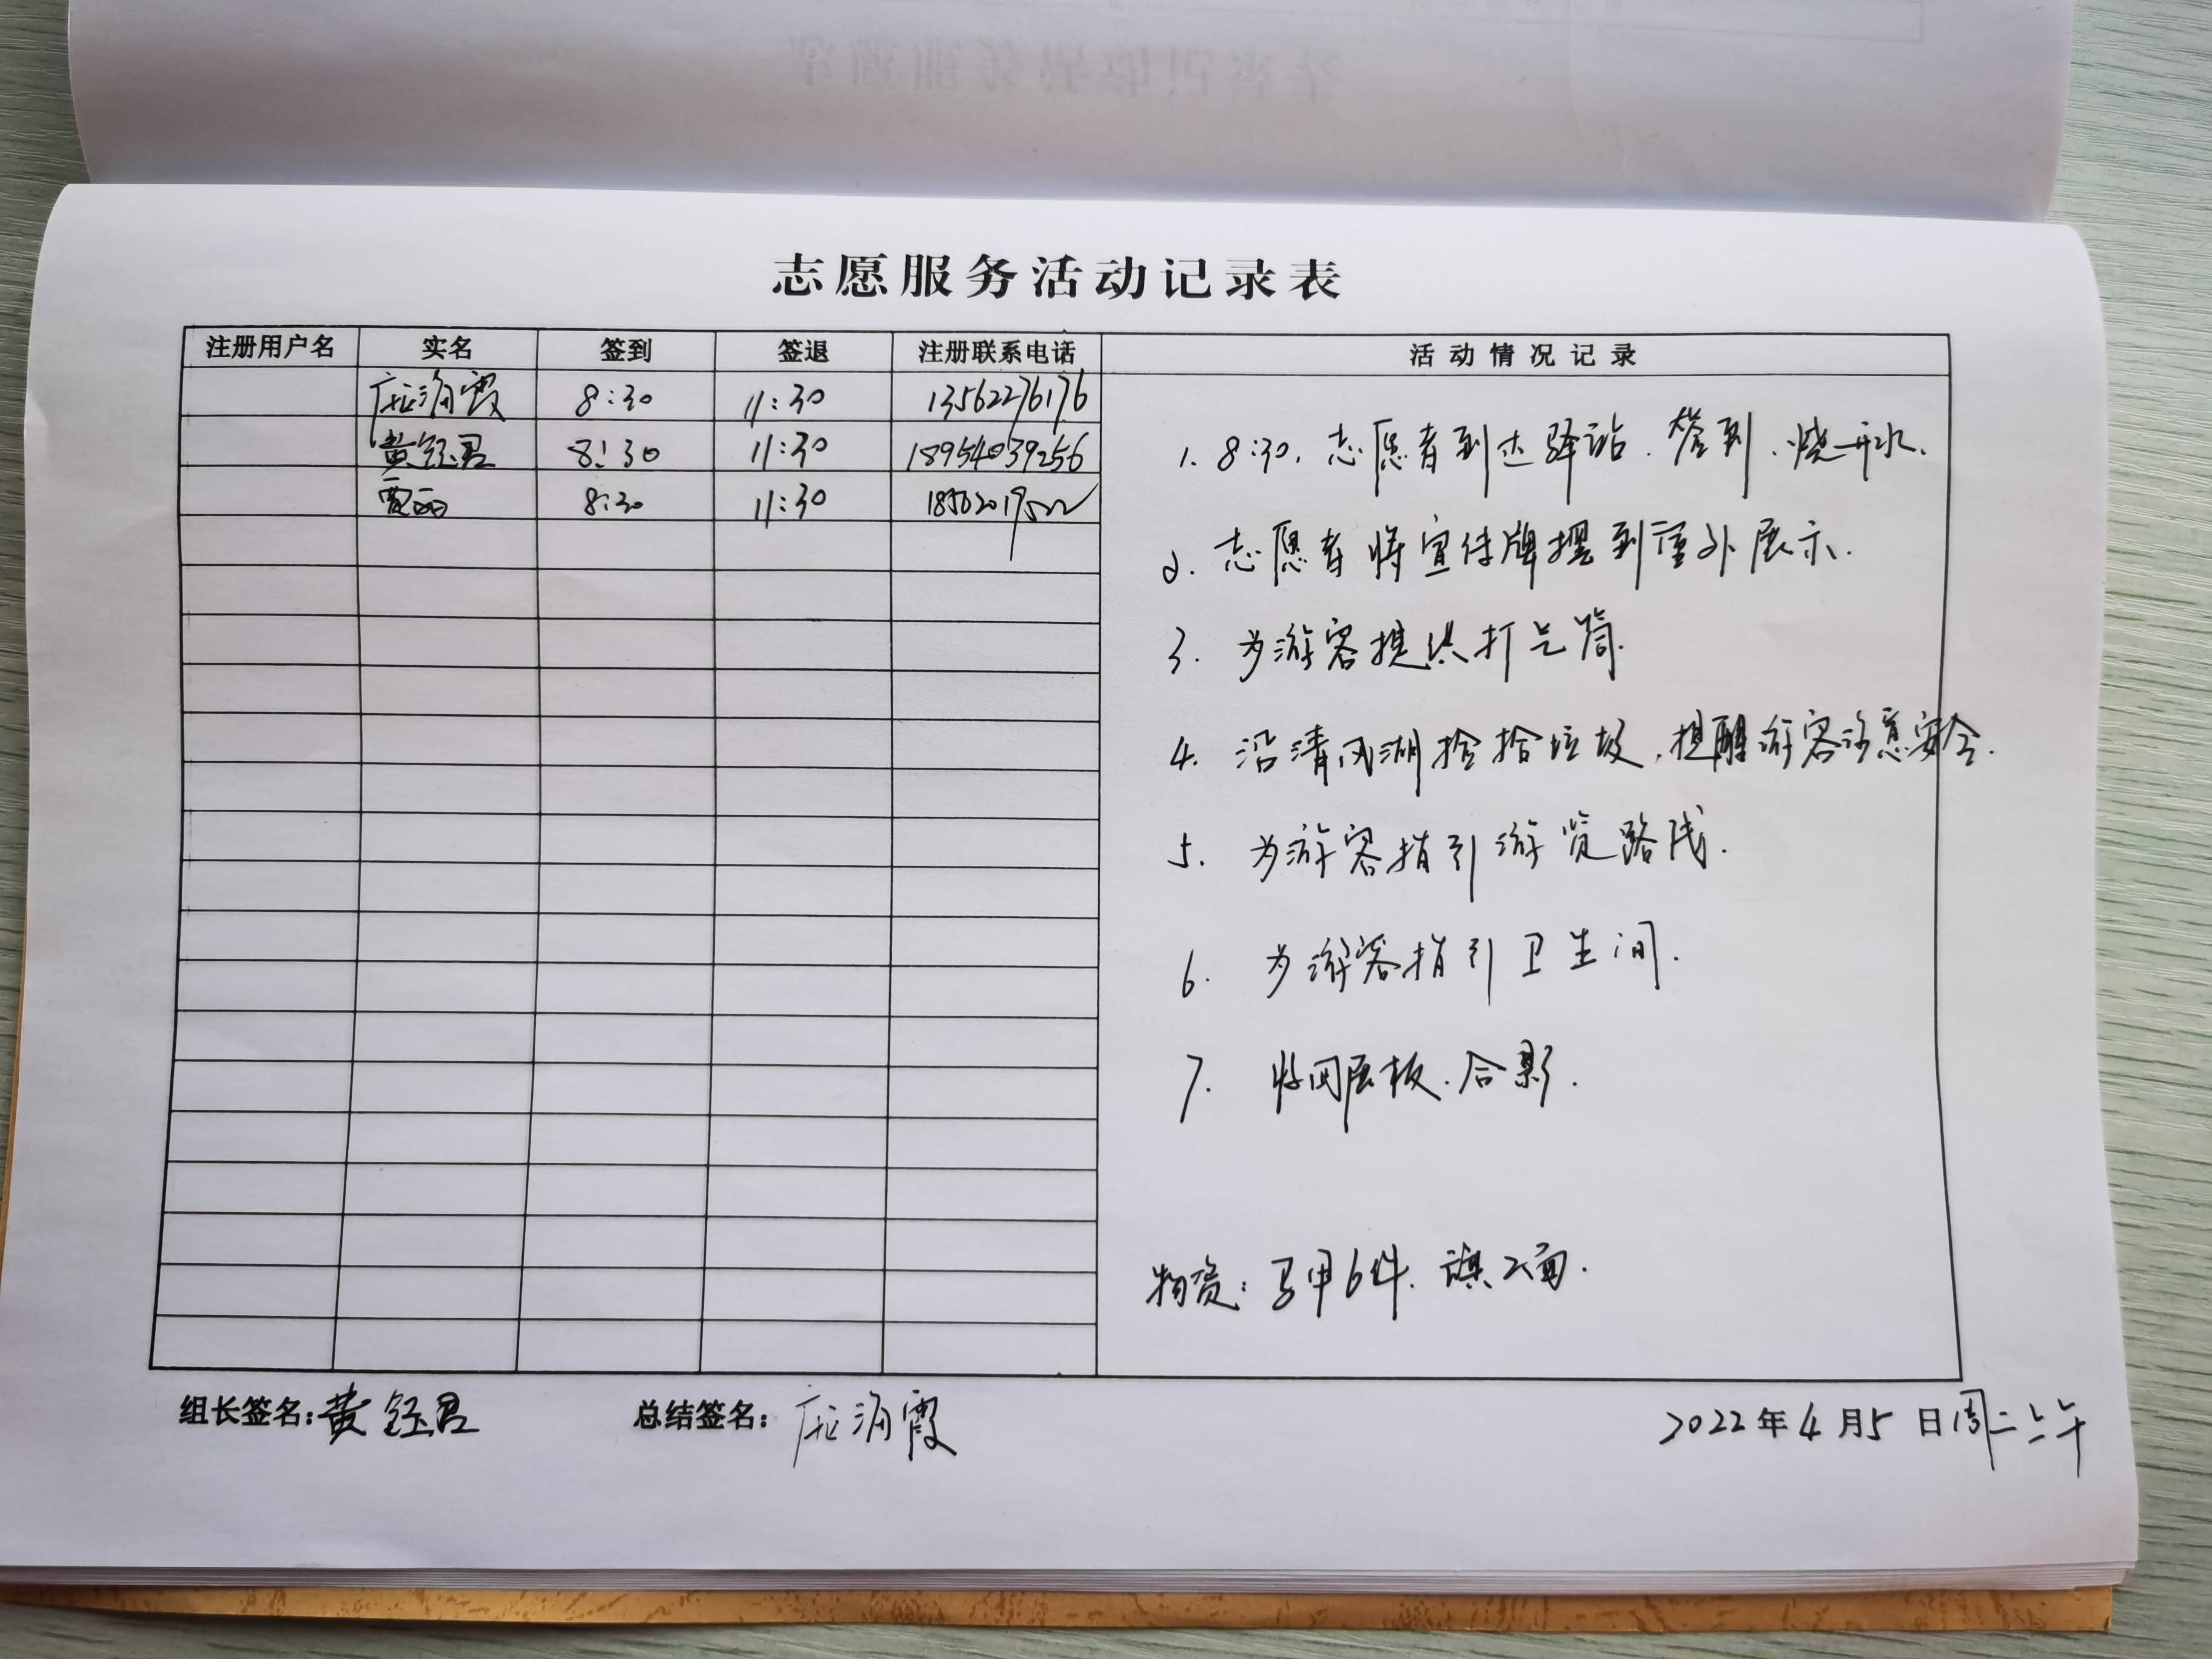 志愿服务活动记录表
注册用户名 实名 签到 签退 注册联系电话 活动情况记录
霞 8:30 11:30 13562276176
黄钰君 8:30 11:30 18954039256
贾丽 8:30 11:30
1. 8:30. 志愿者到达驿站. 签到. 烧开水.
2. 志愿者将宣传牌摆到室外展示.
3. 为游客提供打气筒.
4. 沿清风湖捡拾垃圾. 提醒游客注意安全.
5. 为游客指引游览路线.
6. 为游客指引卫生间.
7. 收回展板. 合影.
物资: 马甲6件. 旗2面.
组长签名: 黄钰君 总结签名: 霞 2022年4月5日周二上午